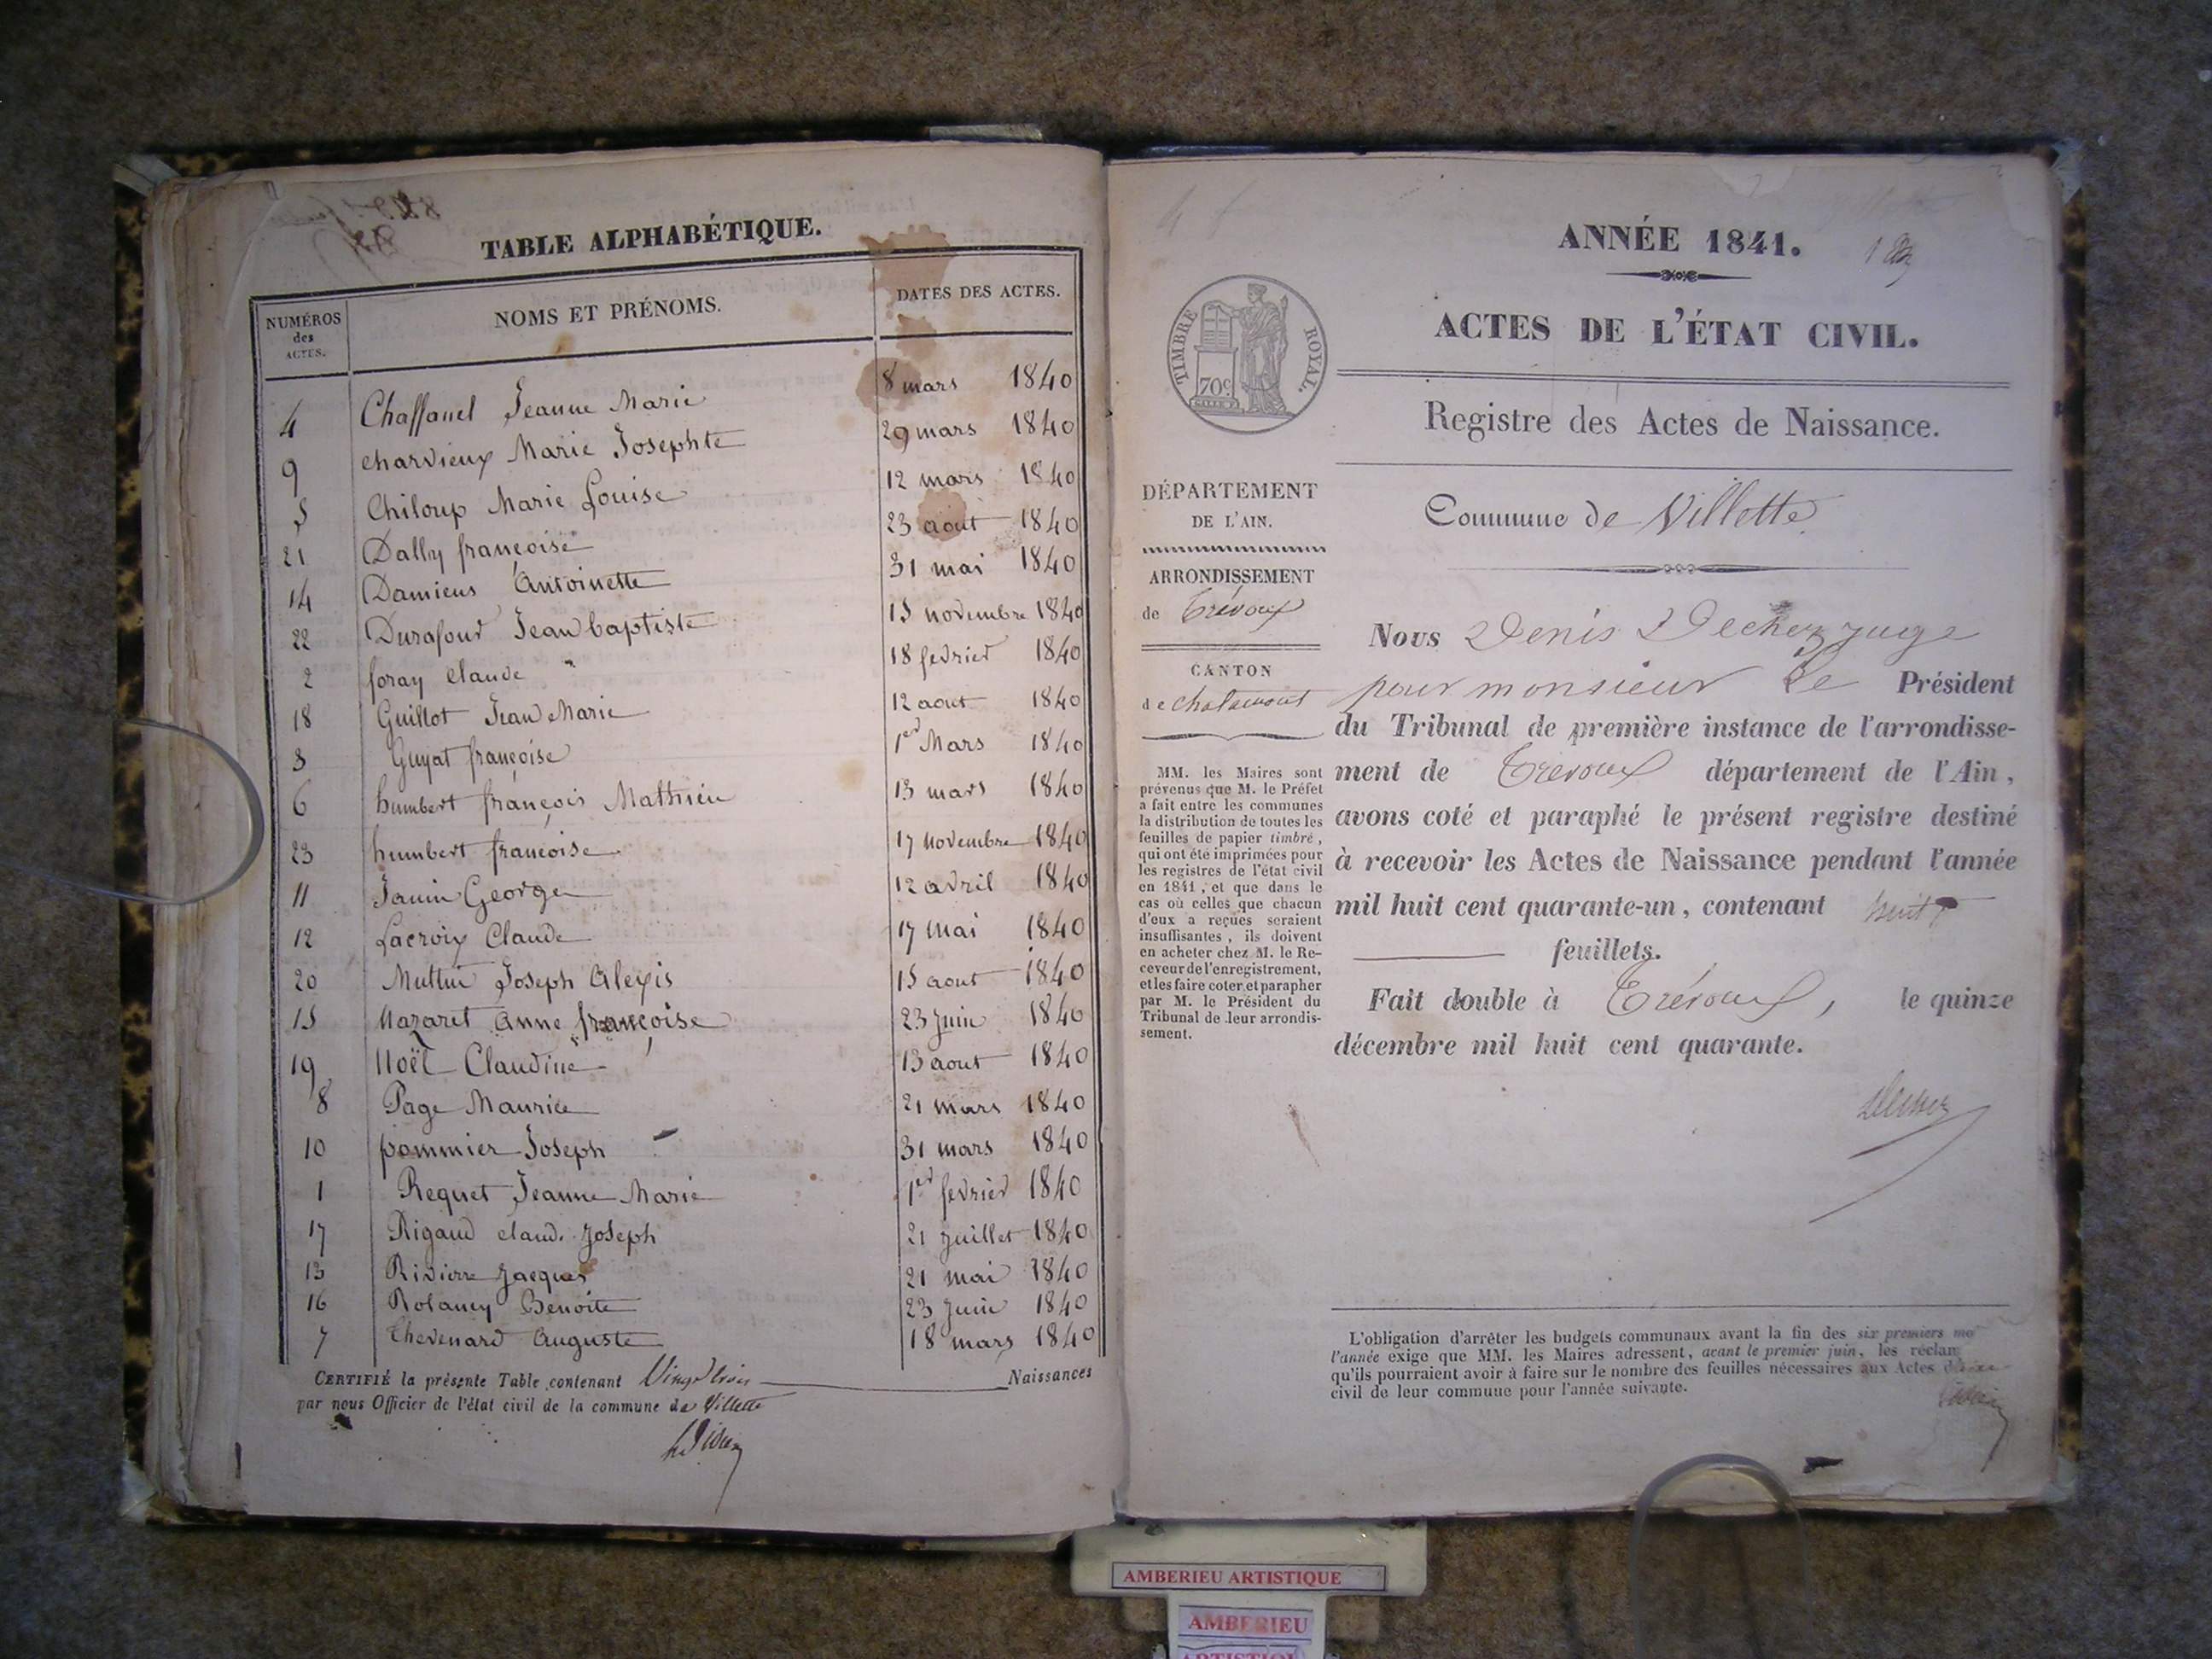 TABLE ALPHABÉTIQUE.
NUMÉROS des ACTES. NOMS ET PRÉNOMS. DATES DES ACTES.
4 Chaffanel Jeanne Marie 8 mars 1840
9 Charvieux Marie Josephte 29 mars 1840
5 Chiloup Marie Louise 12 mars 1840
21 Dally françoise 23 aout 1840
14 Damiens Antoinette 31 mai 1840
22 Durafour Jean baptiste 15 novembre 1840
2 foray Claude 18 fevrier 1840
18 Guillot Jean Marie 12 aout 1840
3 Guyat françoise 1er Mars 1840
6 humbert françois Mathieu 13 mars 1840
23 humbert françoise 17 novembre 1840
11 Janin George 12 avril 1840
12 Lacroix Claude 17 mai 1840
20 Joseph Alexis 15 aout 1840
15 Mazaret anne françoise 23 Juin 1840
19 Noël Claudine 13 aout 1840
8 Page Maurice 21 mars 1840
10 pommier Joseph 31 mars 1840
1 Requet Jeanne Marie 1er fevrier 1840
17 Rigaud claud. Joseph 21 Juillet 1840
13 Rivierre Jacques 21 mai 1840
16 Rolancy Benoite 23 Juin 1840
7 Thevenard Auguste 18 mars 1840
CERTIFIÉ la présente Table contenant Vingt trois Naissances
par nous Officier de l'état civil de la commune de Villette
ANNÉE 1841.
ACTES DE L'ÉTAT CIVIL.
TIMBRE ROYAL.
70c
Registre des Actes de Naissance.
Commune de Villette
DÉPARTEMENT
DE L'AIN.
ARRONDISSEMENT
de Trévoux
CANTON
de chalamont
MM. les Maires sont
prévenus que M. le Préfet
a fait entre les communes
la distribution de toutes les
feuilles de papier timbré,
qui ont été imprimées pour
les registres de l'état civil
en 1841, et que dans le
cas où celles que chacun
d'eux a reçues seraient
insuffisantes, ils doivent
en acheter chez M. le Re-
ceveur de l'enregistrement,
et les faire coter et parapher
par M. le Président du
Tribunal de leur arrondis-
sement.
Nous Denis Dechez juge
pour monsieur Le Président
du Tribunal de première instance de l'arrondisse-
ment de Trevoux département de l'Ain,
avons coté et paraphé le présent registre destiné
à recevoir les Actes de Naissance pendant l'année
mil huit cent quarante-un, contenant huit
feuillets.
Fait double à Trévoux, le quinze
décembre mil huit cent quarante.
Dechez
L'obligation d'arrêter les budgets communaux avant la fin des six premiers mo
l'année exige que MM. les Maires adressent, avant le premier juin, les réclam
qu'ils pourraient avoir à faire sur le nombre des feuilles nécessaires aux Actes
civil de leur commune pour l'année suivante.
AMBERIEU ARTISTIQUE
AMBERIEU
ARTISTIQUE